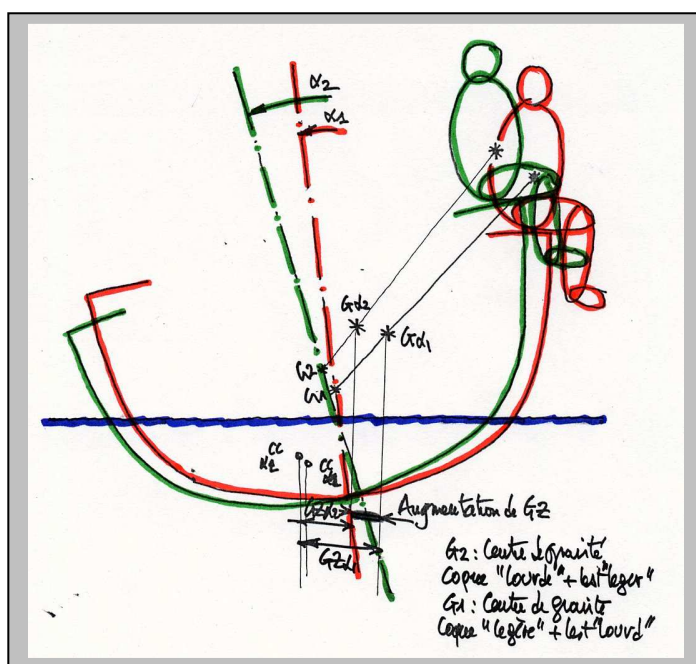 α2
α1
Gα2
Gα1
G2
G1
CC
α2
CC
α1
GZα2
Augmentation de GZ
GZα1
G2 : Centre de gravité
Coque "lourde" + lest "leger"
G1 : Centre de gravité
Coque "legère" + lest "lourd"